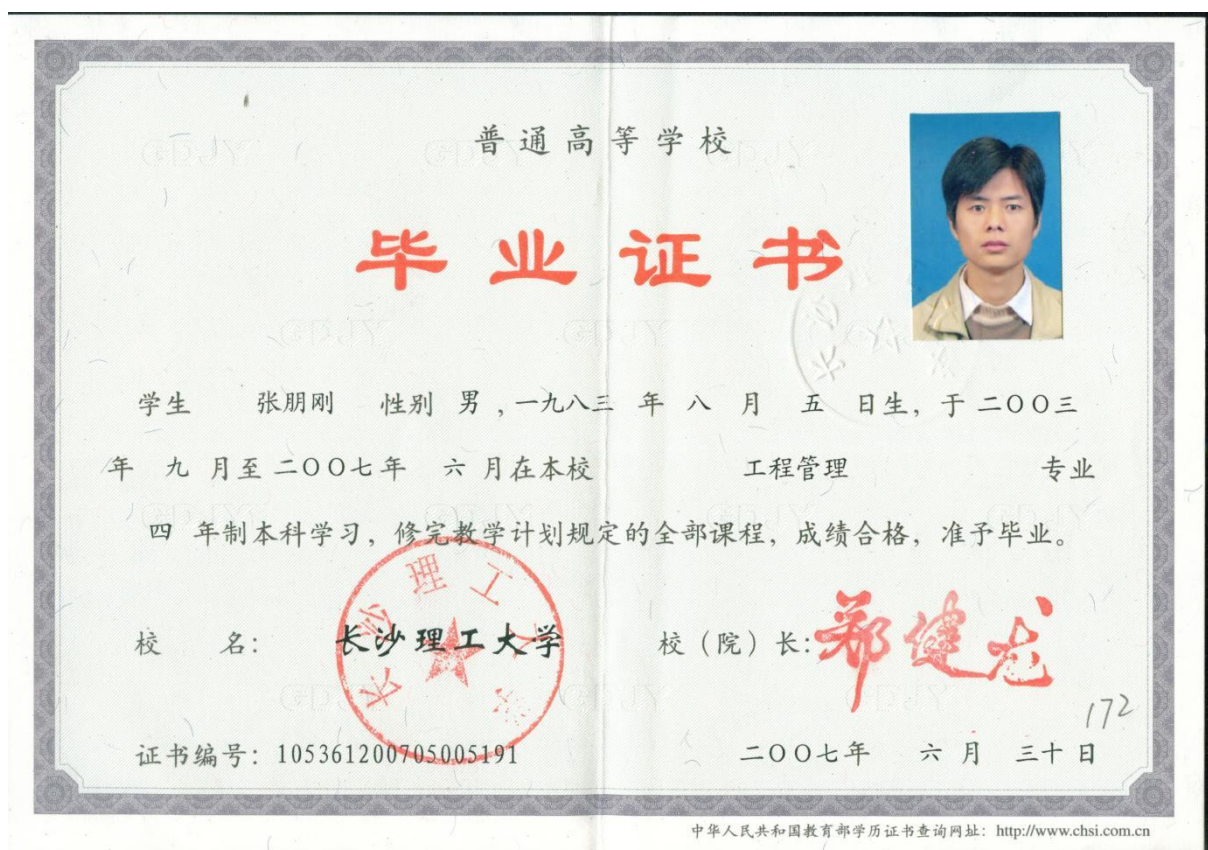 普通高等学校
毕业证书
学生 张朋刚 性别 男 ,一九八三 年 八 月 五 日生, 于 二〇〇三
年 九 月至 二〇〇七年 六 月在本校 工程管理 专业
四 年制本科学习, 修完教学计划规定的全部课程, 成绩合格, 准予毕业。
校 名: 长沙理工大学 校 (院) 长: 郑健龙
长沙理工大学
172
证书编号: 105361200705005191 二〇〇七年 六 月 三十 日
中华人民共和国教育部学历证书查询网址: http://www.chsi.com.cn